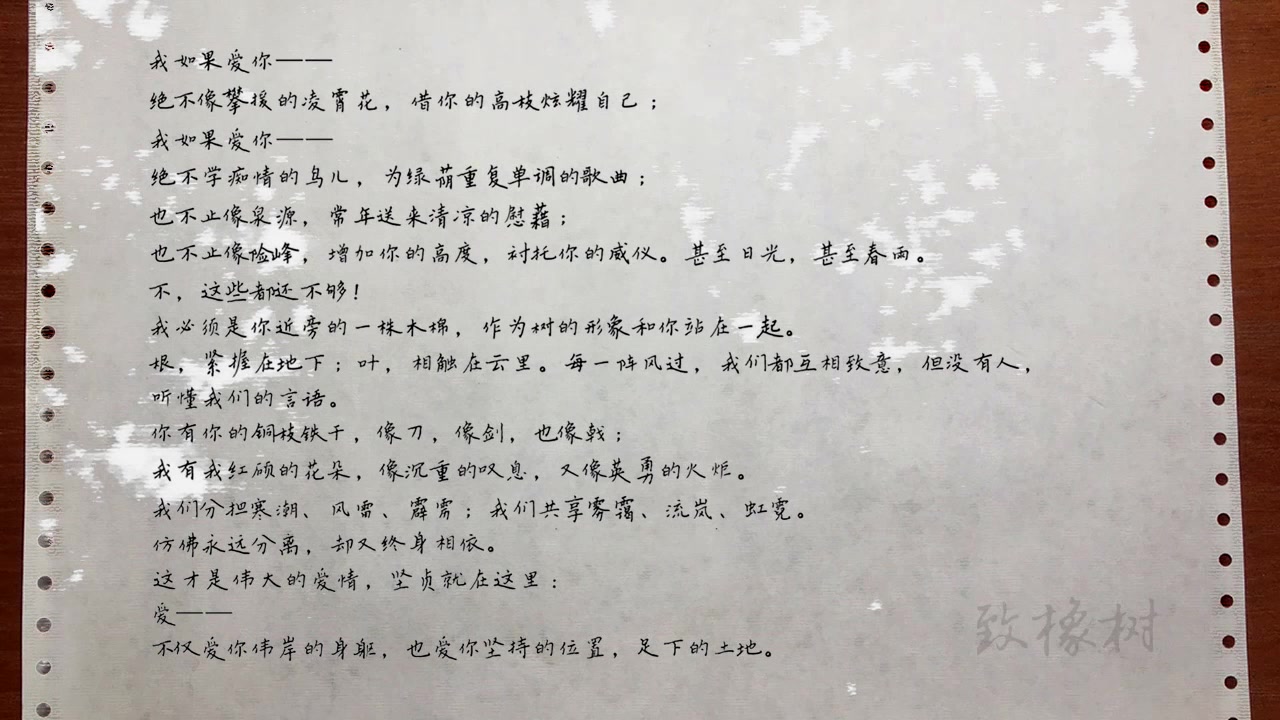 我如果爱你——
绝不像攀援的凌霄花，借你的高枝炫耀自己；
我如果爱你——
绝不学痴情的鸟儿，为绿荫重复单调的歌曲；
也不止像泉源，常年送来清凉的慰藉；
也不止像险峰，增加你的高度，衬托你的威仪。甚至日光，甚至春雨。
不，这些都还不够！
我必须是你近旁的一株木棉，作为树的形象和你站在一起。
根，紧握在地下；叶，相触在云里。每一阵风过，我们都互相致意，但没有人，
听懂我们的言语。
你有你的铜枝铁干，像刀，像剑，也像戟；
我有我红硕的花朵，像沉重的叹息，又像英勇的火炬。
我们分担寒潮、风雷、霹雳；我们共享雾霭、流岚、虹霓。
仿佛永远分离，却又终身相依。
这才是伟大的爱情，坚贞就在这里：
爱——
不仅爱你伟岸的身躯，也爱你坚持的位置，足下的土地。
致橡树